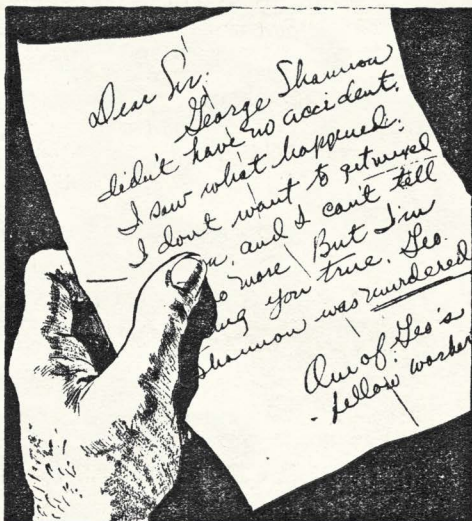 Dear Sir:
George Shannon
didn't have no accident.
I saw what happened.
I don't want to get mixed
and I can't tell
more But I'm
you true. Geo.
Shannon was murdered
One of Geo's
fellow worker